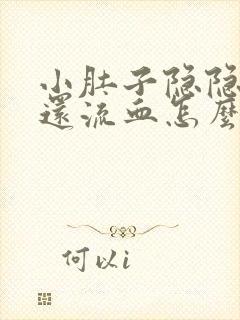 小肚子隐隐
還流血怎麼
何以i